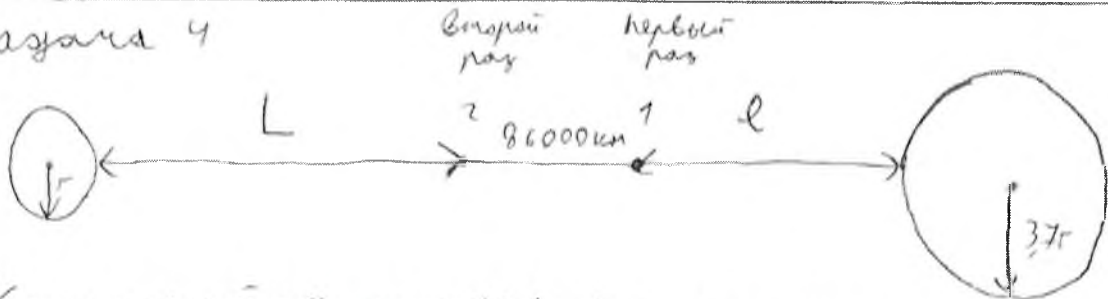 задача 4
Второй Первый
раз раз
L 2 86000км 1 l
r
3,7r